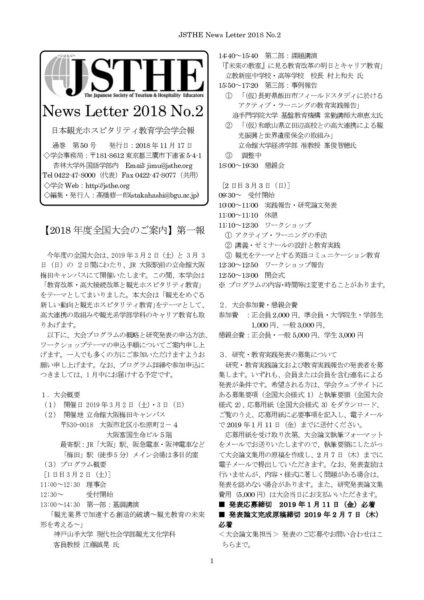 JSTHE News Letter 2018 No.2
JSTHE
The Japanese Society of Tourism & Hospitality Educators
News Letter 2018 No.2
日本観光ホスピタリティ教育学会学会報
通巻 第50号 発行日：2018年11月17日
◇学会事務局：〒181-8612 東京都三鷹市下連雀5-4-1
杏林大学外国語学部内 Email: jimu@jsthe.org
Tel 0422-47-8000（代表）Fax 0422-47-8077（共用）
◇学会 Web：http://jsthe.org
◇編集・発行人：高橋修一郎(stakahashi@bgu.ac.jp)
【2018年度全国大会のご案内】第一報
今年度の全国大会は、2019年3月2日（土）と3月3
日（日）の2日間にわたり、JR大阪駅前の立命館大阪
梅田キャンパスにて開催いたします。この間、本学会は
「教育改革・高大接続改革と観光ホスピタリティ教育」
をテーマとしてまいりました。本大会は「観光をめぐる
新しい動向と観光ホスピタリティ教育」をテーマとして、
高大連携の取組みや観光系学部学科のキャリア教育も取
りあげます。
以下に、大会プログラムの概略と研究発表の申込方法、
ワークショップテーマの申込手順についてご案内申し上
げます。一人でも多くの方にご参加いただけますようお
願い申し上げます。なお、プログラム詳細や参加申込に
つきましては、1月中にお届けする予定です。
1．大会概要
（1） 開催日 2019年3月2日（土）・3日（日）
（2） 開催地 立命館大阪梅田キャンパス
〒530-0018 大阪市北区小松原町2－4
大阪富国生命ビル5階
最寄駅：JR「大阪」駅、阪急電車・阪神電車など
「梅田」駅（徒歩5分）メイン会場は多目的室
（3） プログラム概要
[1日目3月2日（土）]
11:00～12:30 理事会
12:30～ 受付開始
13:00～14:30 第一部：基調講演
「観光業界で加速する創造的破壊～観光教育の未来
形を考える～」
神戸山手大学 現代社会学部観光文化学科
客員教授 江藤誠晃 氏
14:40～15:40 第二部：課題講演
「『未来の教室』に見る教育改革の明日とキャリア教育」
立教新座中学校・高等学校 校長 村上和夫 氏
15:50～17:20 第三部：事例報告
① 「（仮）長野県飯田市フィールドスタディに於ける
アクティブ・ラーニングの教育実践報告」
追手門学院大学 基盤教育機構 常勤講師 大串恵太氏
② 「（仮）和歌山県立田辺高校との高大連携による観
光振興と世界遺産保全の取組み」
立命館大学経済学部 准教授 峯俊智穂氏
③ 調整中
18:00～19:30 懇親会
[2日目3月3日（日）]
09:30～ 受付開始
10:00～11:00 実践報告・研究論文発表
11:00～11:10 休憩
11:10～12:30 ワークショップ
① アクティブ・ラーニングの手法
② 講義・ゼミナールの設計と教育実践
③ 観光をテーマとする英語コミュニケーション教育
12:30～12:50 ワークショップ報告
12:50～13:00 閉会式
※ プログラムの内容・時間等は変更することがあります。
2．大会参加費・懇親会費
参加費 ：正会員2,000円、準会員・大学院生・学部生
1,000円、一般3,000円、
懇親会費：正会員・一般5,000円、学生3,000円
3．研究・教育実践発表の募集について
研究・教育実践論文および教育実践報告の発表者を募
集します。いずれも、会員または会員を含む連名による
発表が条件です。希望される方は、学会ウェブサイトに
ある募集要項（全国大会様式1）と執筆要領（全国大会
様式2）、応募用紙（全国大会様式3）をダウンロード、
ご覧のうえ、応募用紙に必要事項を記入し、電子メール
で2019年1月11日（金）までに送付ください。
応募用紙を受け取り次第、大会論文執筆フォーマット
をメールでお送りいたしますので、執筆要領にしたがっ
て大会論文集用の原稿を作成し、2月7日（木）までに
電子メールで提出していただきます。なお、発表査読は
行いませんが、内容・様式に著しく問題がある場合は、
発表を認めない場合があります。また、研究発表論文集
費用（5,000円）は大会当日にお支払いいただきます。
■ 発表応募締切 2019年1月11日（金）必着
■ 発表論文完成原稿締切 2019年2月7日（木）
必着
＜大会論文集担当＞ 発表のご応募やお問い合わせはこ
ちらまで。
1